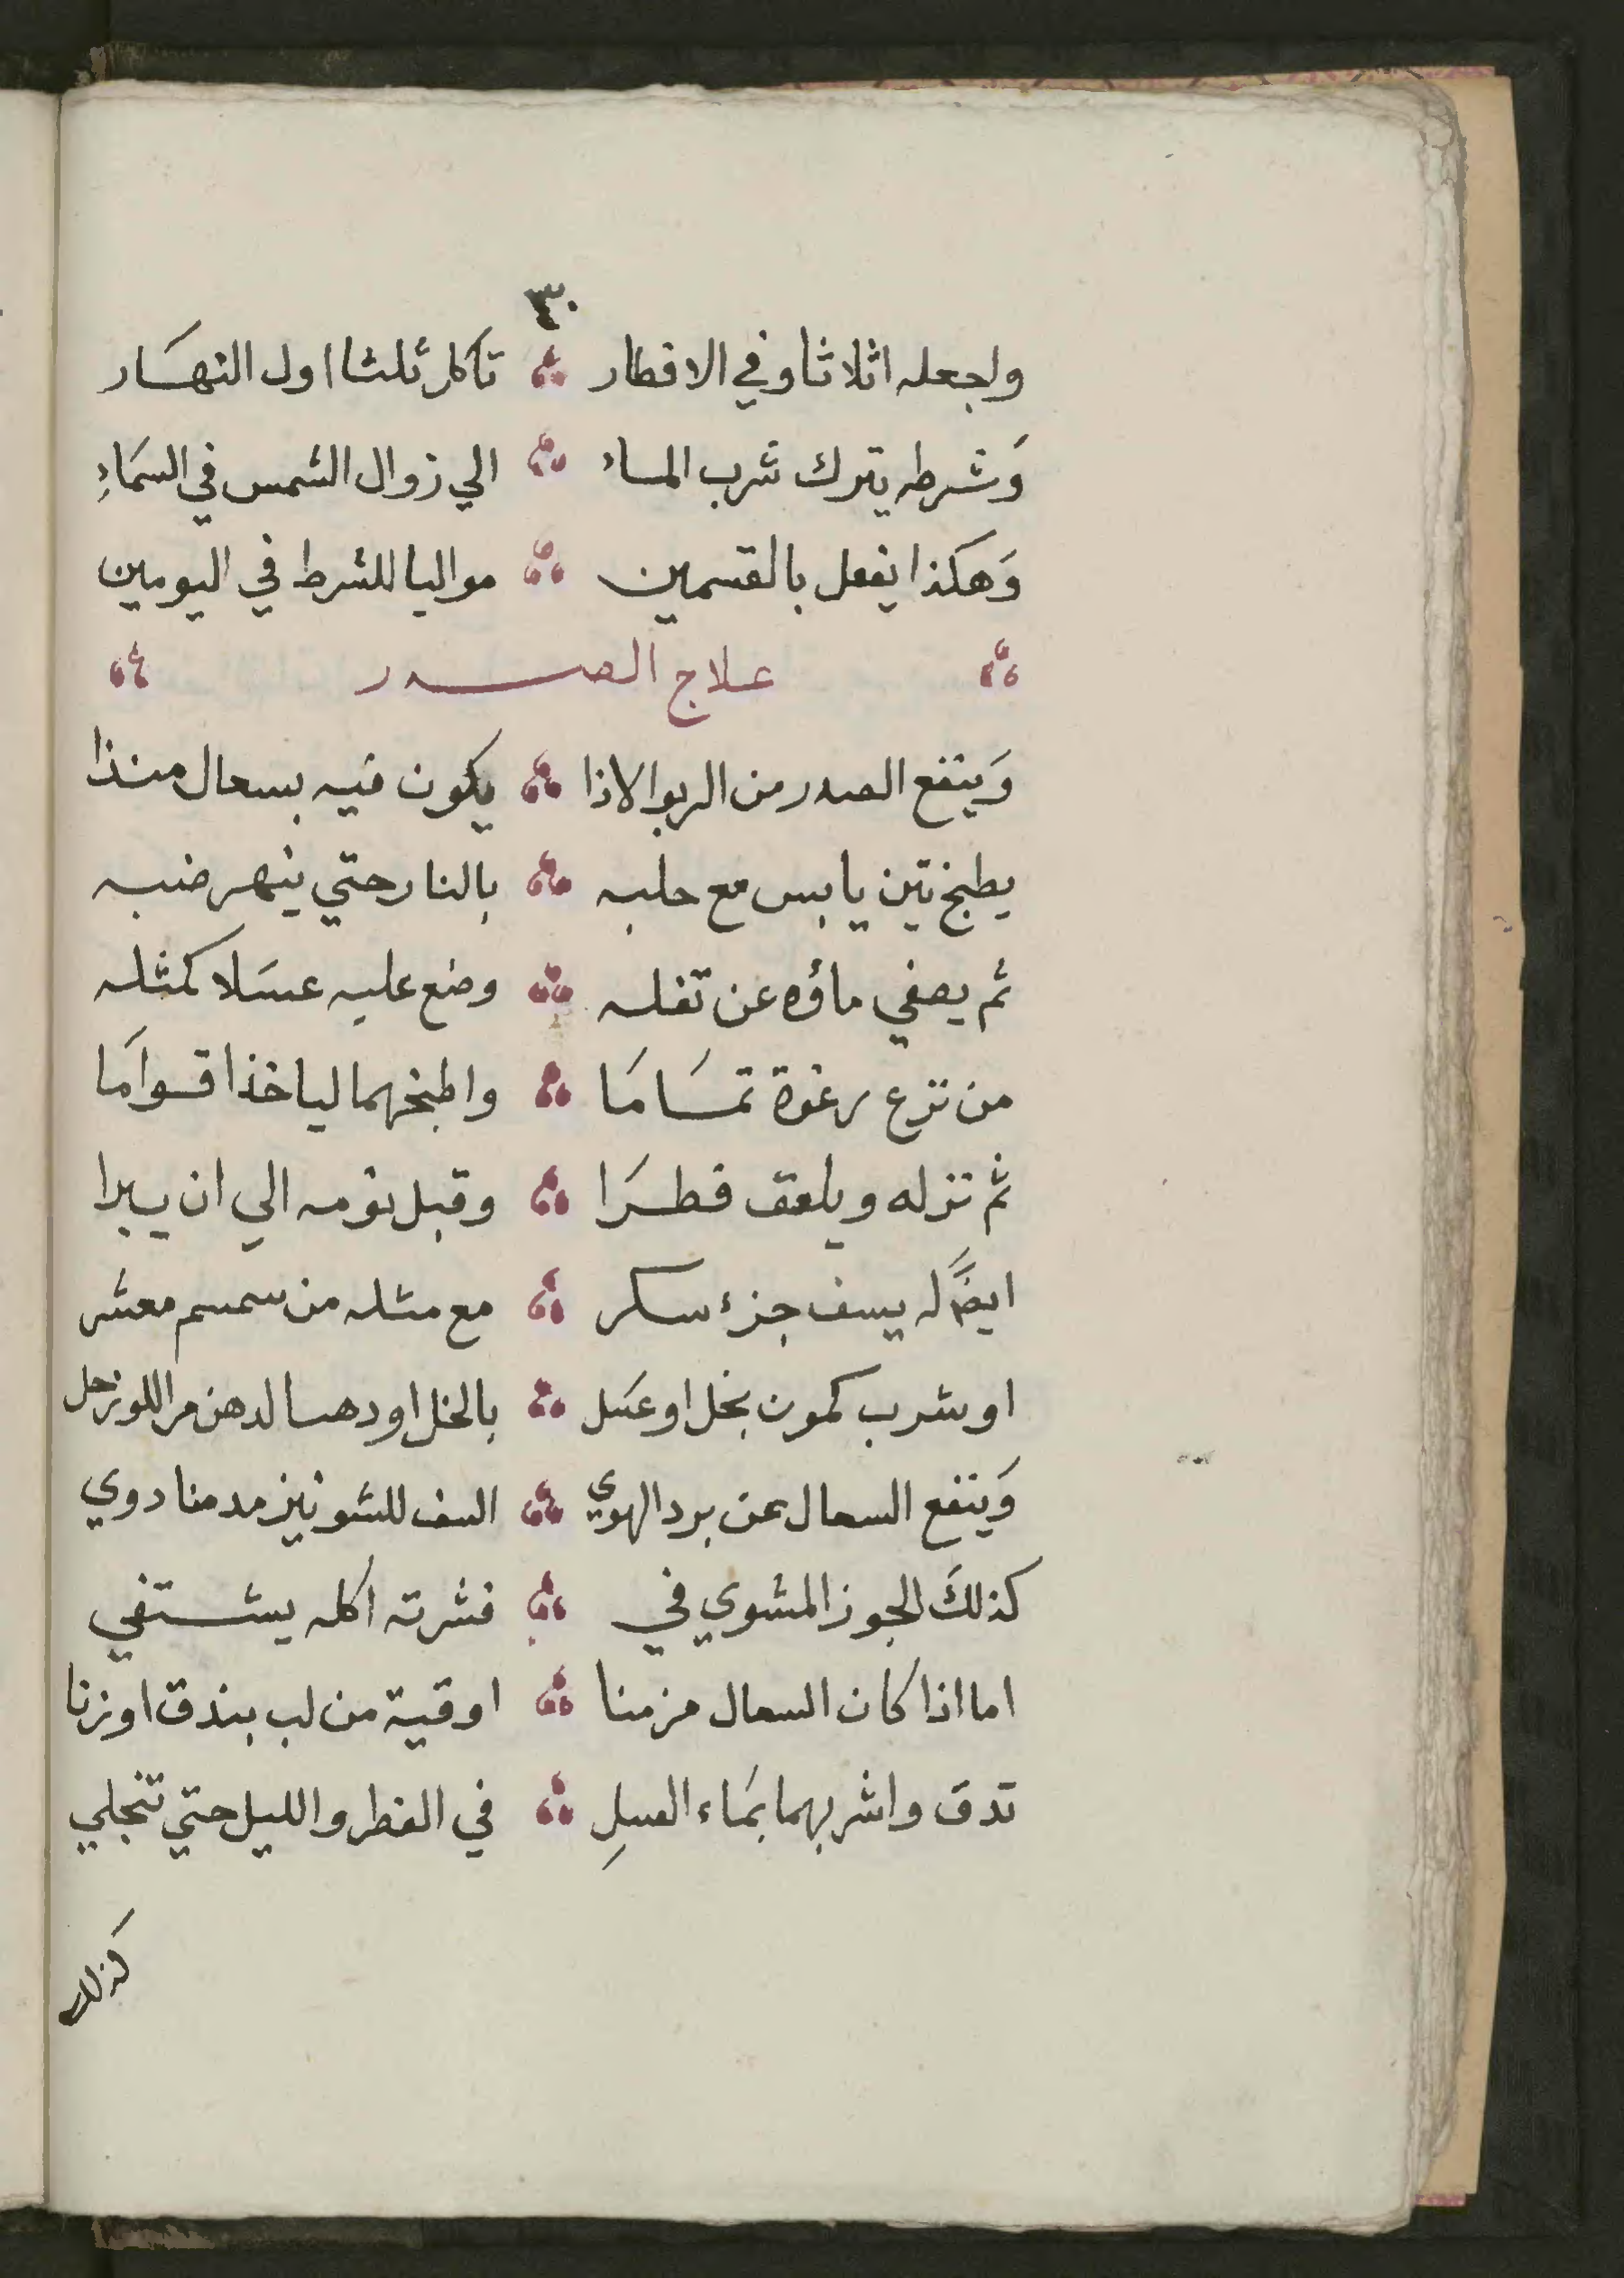 ٣٠
واجعله اثلاثا وفي الافطار ؞ تاكل ثلثا اول النهار
وَشرطه يترك شرب الماء ؞ الي زوال الشمس في السمَاءِ
وَهكذا يفعل بالقسمين ؞ مواليا للشرط في اليومين
؞ علاج الصدر ؞
وَينفع الصدر من الربو الاذا ؞ يكون فيه بسعال منذا
يطبخ تين يابس مع حلبه ؞ بالنار حتي ينهر ضبه
ثم يصفي ماؤه عن تفله ؞ وضع عليه عسَلا كمثله
من نزع رغوة تمَامَا ؞ واطبخهما لياخذا قوامَا
ثم تنزله ويلعق فطرَا ؞ وقبل نومه الي ان يبرا
ايضًا له يسف جزء سكر ؞ مع مثله من سمسم مقشر
او شرب كمون بخل او عسَل ؞ بالخل او دهنا لدهن مر اللوز حل
وَينفع السعال عن برد الهوي ؞ السف للشونيز مدمنا دوي
كذلكَ الجوز المشوي في ؞ قشرته اكله يستشفي
اما اذا كان السعال مزمنا ؞ اوقية من لب بندق اوزنا
تدق واشربهما بمَاء العسلِ ؞ في الفطر والليل حتي تنجلي
كذلك